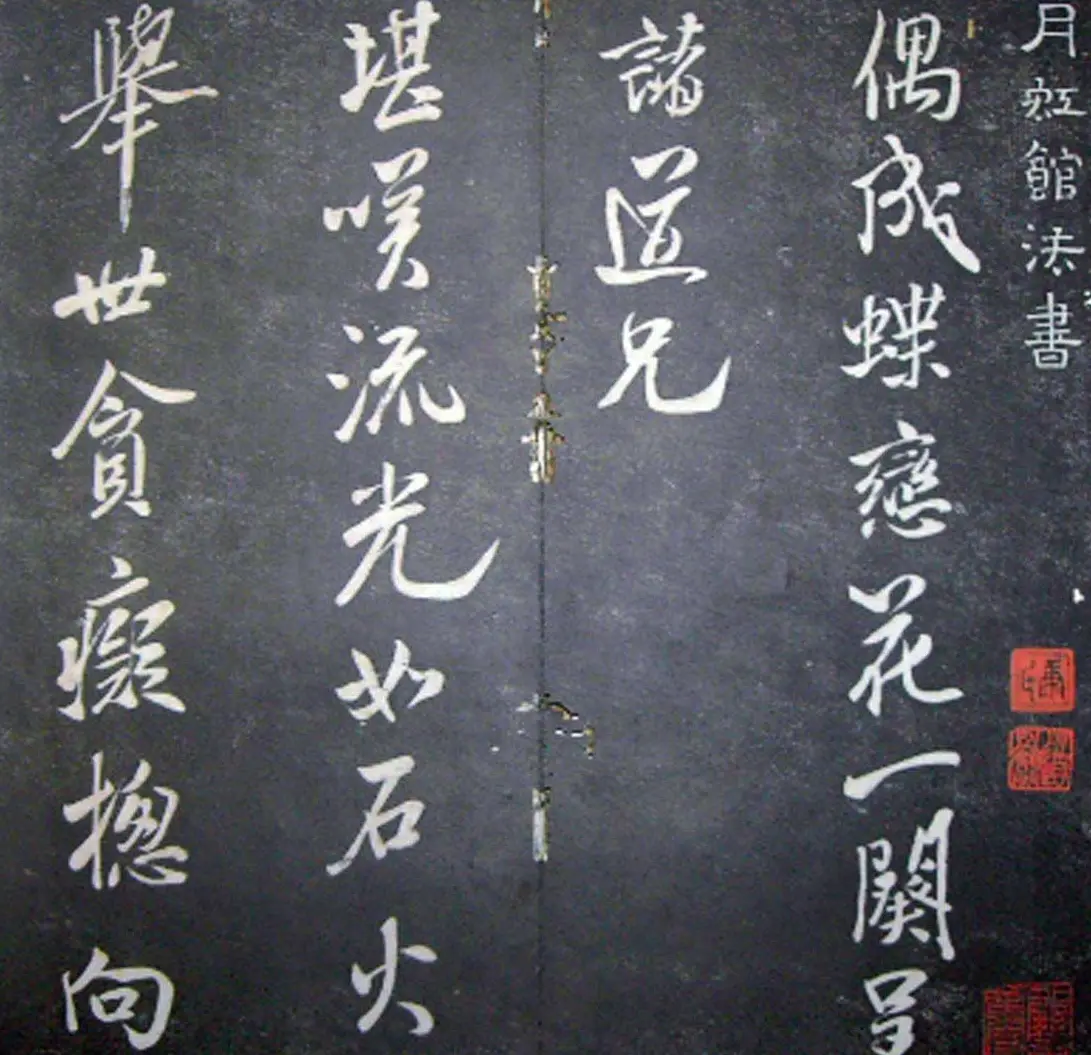 月虹館法書
偶成蝶戀花一闋呈
諸道兄
堪嘆流光如石火
舉世貪癡摠向